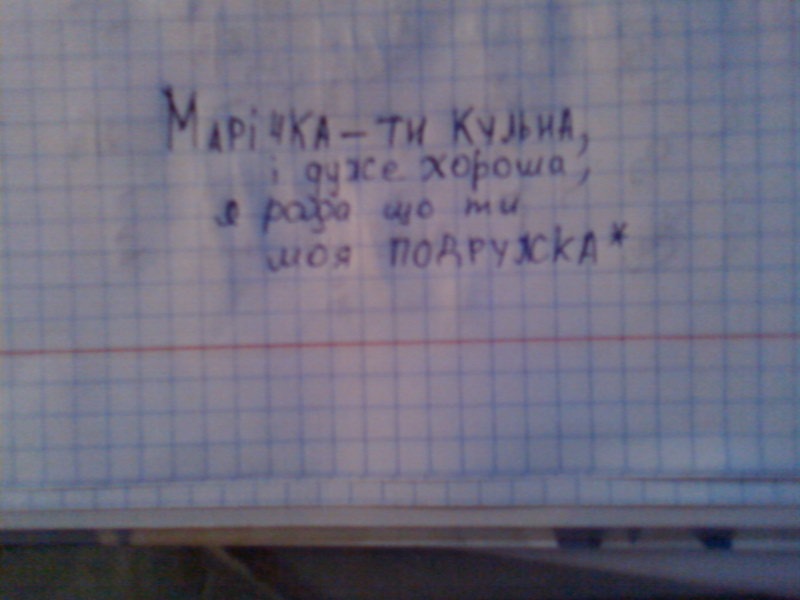 Марічка – ти кульна,
і дуже хороша,
я рада що ти
моя ПОДРУЖКА*